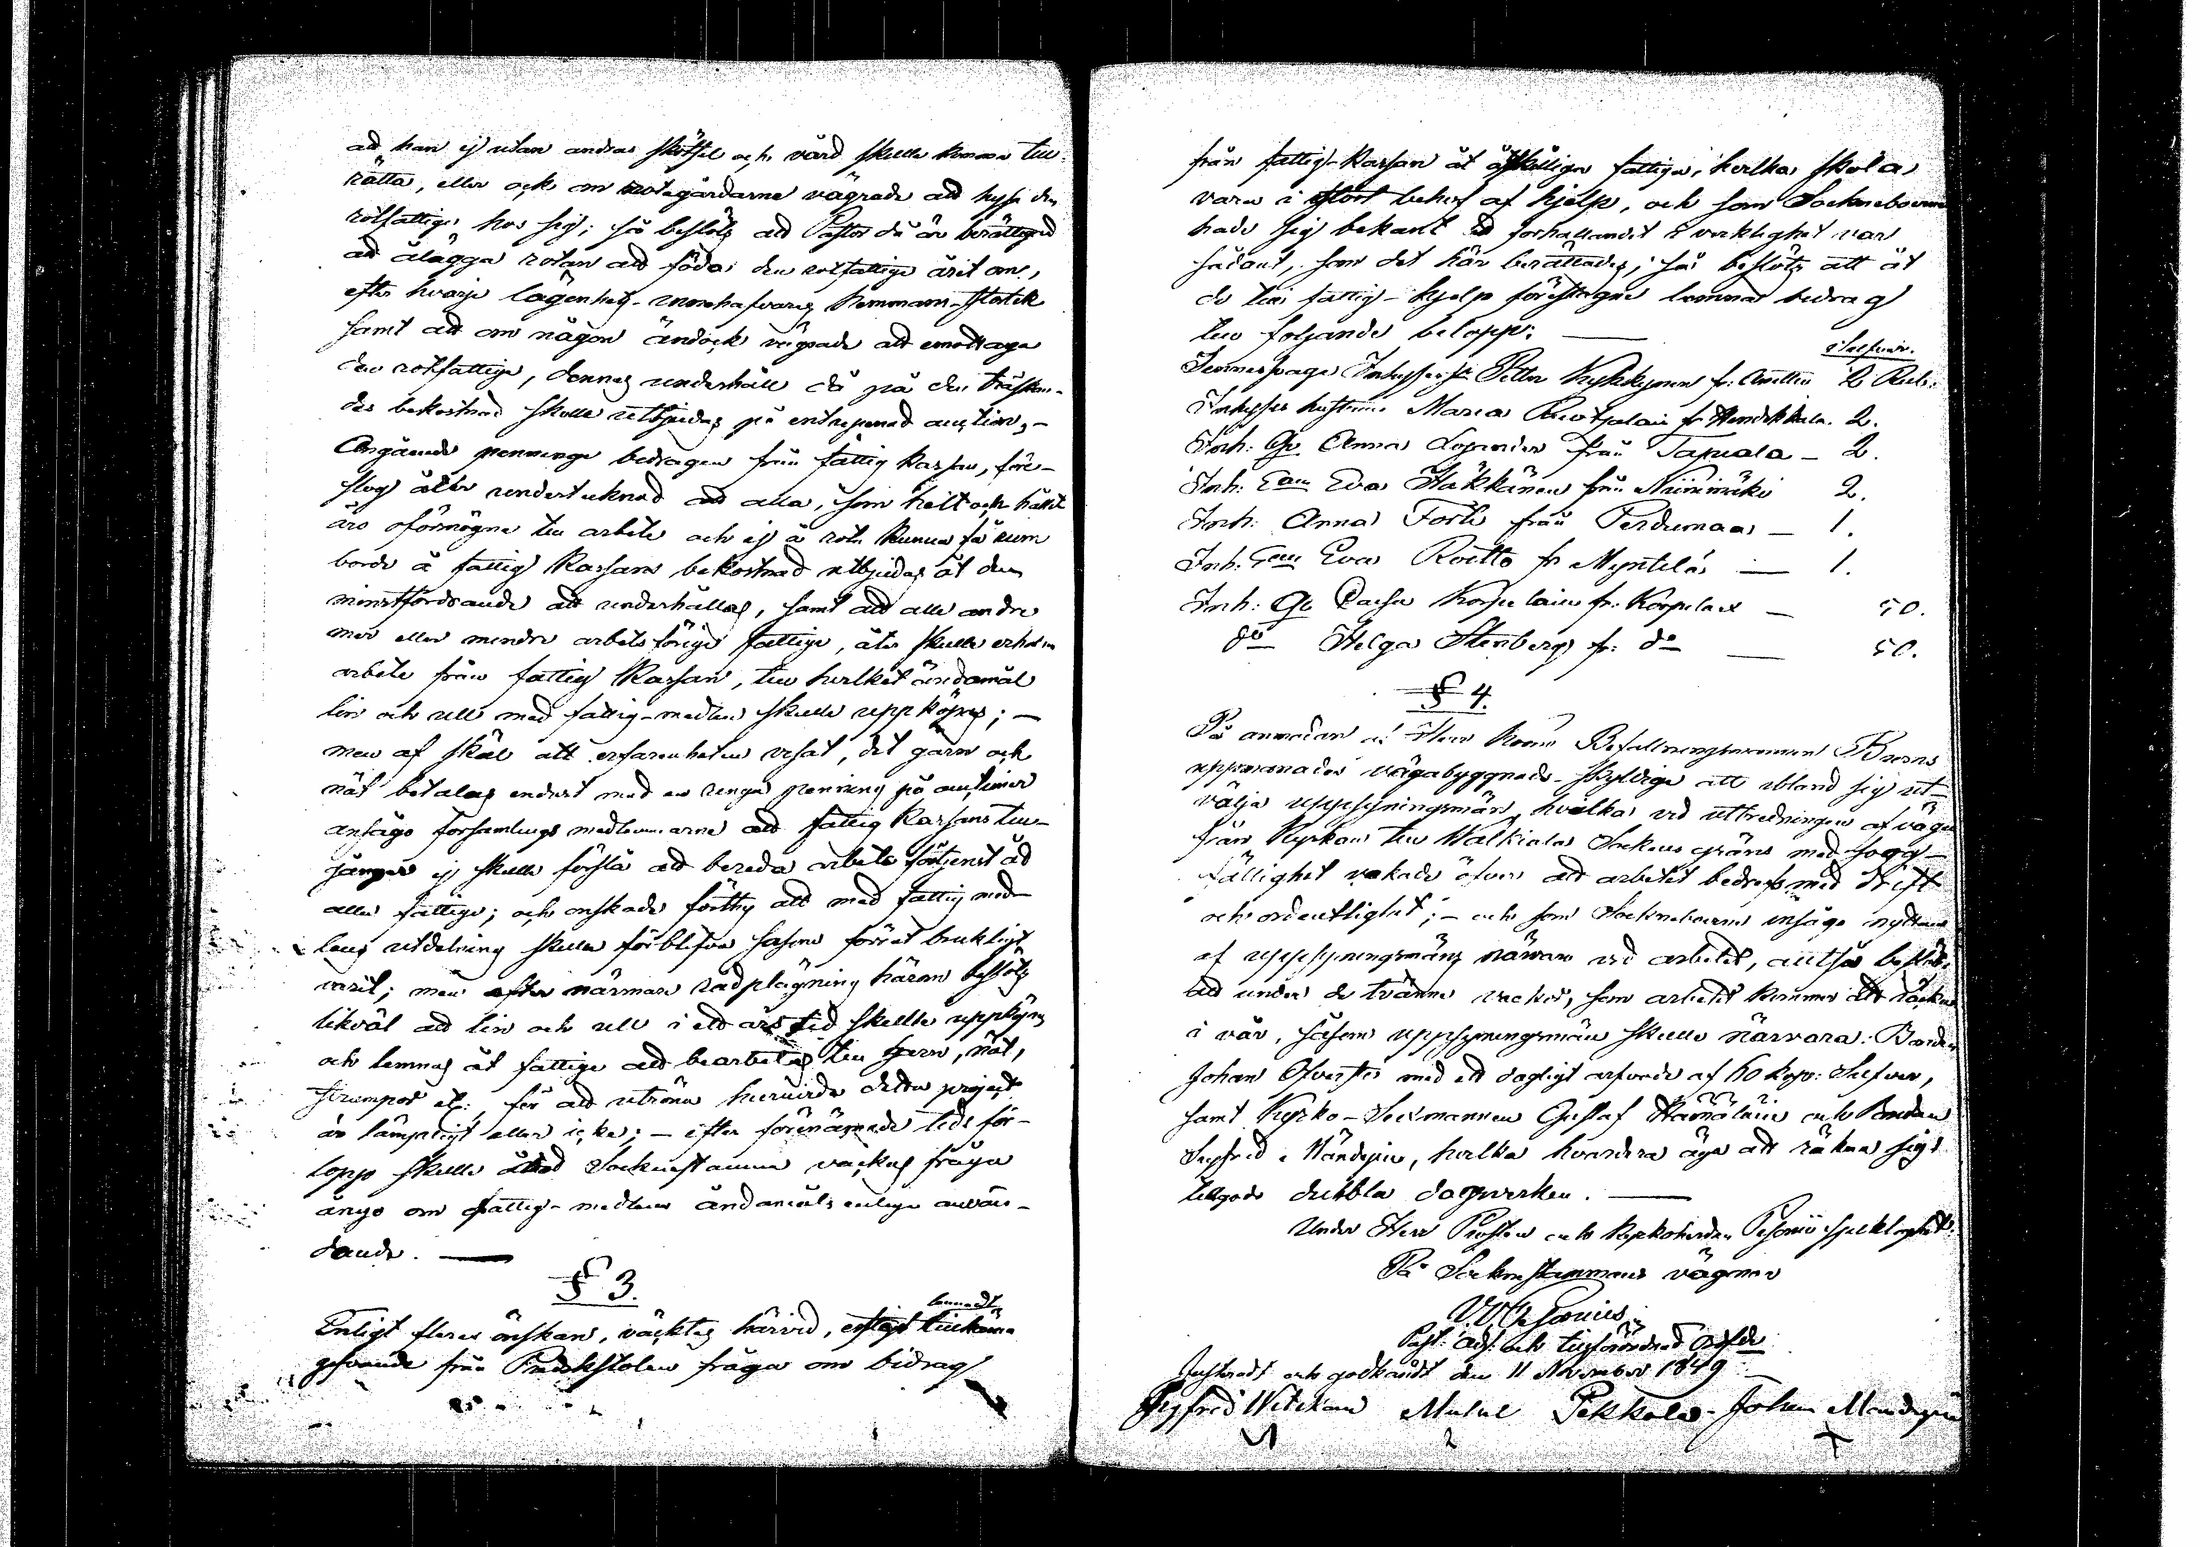 att han ej utan andras skötsel och vård skulle komma till
rätta, eller ock om rotegårdarne vägrade att hysa den
rotfattige hos sig; så beslöts att Pastor då är berättigad
att ålägga rotan att föda den rotfattige året om,
efter hvarje lägenhets innehafvares hemmans-storlek
samt att om någon ändock vägrade att emottaga
den rotfattige, dennes underhåll då på den
des bekostnad skulle utbjudas på entreprenad auction,-
Angående penninge bidragen från fattig Kassan, före-
slog åter undertecknad att alla, som helt och hållet
äro oförmögne till arbete och ej å rote kunna få rum
borde å fattig Kassans bekostnad utbjudas åt den
minstfordrande att underhållas, samt att alla andre
mer eller mindre arbetsföriga fattige, åter skulle erhålla
arbete från fattig Kassan, till hvilket ändamål
lin och ull med fattig-medlen skulle uppköpas; —
men af skäl att erfarenheten visat, det garn och
nät betalas endast med en ringa penning på auctioner
ansågo församlings medlemmarne att fattig Kassans till-
gångar ej skulle förslå att bereda arbets förtjenst åt
alla fattige; och önskade förthy att med fattig med-
lens utdelning skulle förblifva såsom förut brukligt
varit; men efter närmare rådplägning härom beslöts
likväl att lin och ull i ett års tid skulle uppköpas
och lemnas åt fattige att bearbetas till garn, nät,
strumpor etc: för att utröna huruvida detta project
är lämpligt eller icke; — efter förenämnde tids för-
lopp skulle å Sockenstämma väckas fråga
ånyo om fattig-medlens ändamåls enliga använ-
dande. —
§ 3.
Enligt fleres önskan, väcktes härvid, tillkänna
gifvande från Predikstolen fråga om bidrag
från fattig-Kassan åt åtskillige fattige, hvilka skola
vara i stort behof af hjelp, och som Sockneboerne
hade sig bekant att förhållandet i verklighet var
sådant, som det här berättades, så beslöts att åt
de till fattig-hjelp föreslagne lemnas bidrag
till följande belopp: —
Silfver.
Inhyses Petter Kykkynen fr: Anttila 2 Rub:
Inhyses hustrun Maria fr Hendrikkala. 2.
Inh: Anna från Tapiala — 2.
Inh: Eva Häkkänen från Niinimäki 2.
Inh: Anna Forss från Perdumaa — 1.
Inh: Eva Roitto fr Myntelä — 1.
Inh: Korpelain fr: Korpelax — 50.
do Helga Stenberg fr: do — 50.
§ 4.
På anmodan af Herr Krono Befallningsmannen
uppmanades vägabyggnads-skyldige att ibland sig ut-
välja uppsyningsmän, hvilka vid uttredningen af vägen
från Kyrkan till Walkiala Sockens gräns med sorg-
fällighet vakade öfver att arbetet bedrefs med drift
och ordentlighet; — och som Sockneboerne insågo nyttan
af uppsyningsmäns närvaro vid arbetet, alltså beslöts
att under de tvänne veckor, som arbetet kommer att räcka
i vår, såsom uppsyningsmän skulle närvara: Bonden
Johan med ett dagligt arfvode af 60 kop: Silfver,
samt Kyrko-Sexmannen Gustaf Hämäläin och Bonden
Sigfrid Händojin, hvilka hvardera äga att räkna sig
tillgodo dubbla dagsverken. —
Under Herr Prosten och Kyrkoherden
På Sockenstämmans vägnar
Past: Adj: och
Justeradt och godkändt den 11 November 1849
Sigfrid Wit Mickel Pekkola Johan